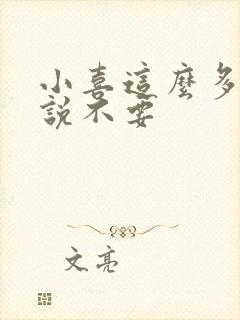 小喜這麼多
說不要
文亮